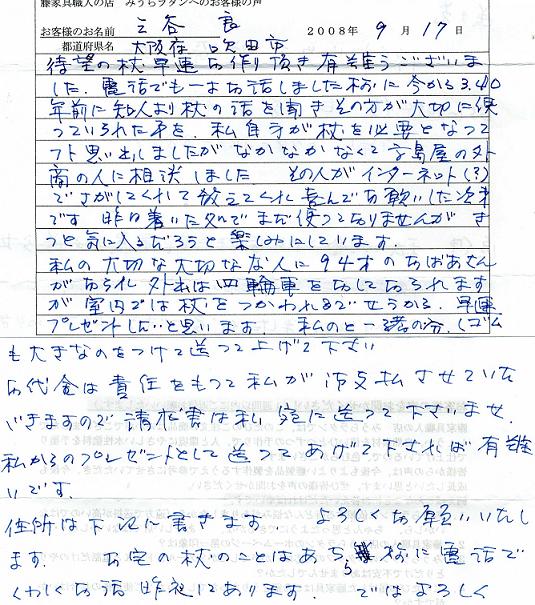 籐家具職人の店　みうらラタンへのお客様の声
お客様のお名前　三谷　　2008年9月17日
都道府県名　大阪府　吹田市
待望の杖早速お作り頂き有難うございま
した。電話でも一寸お話しました様に今から3、40
年前に知人より杖の話を聞きその方が大切に使
っていられた事を、私自身が杖を必要となって
フト思い出しましたがなかなかなくて高島屋の外
商の人に相談しました　その人がインターネット(?)
でさがしてくれて教えてくれ喜んでお願いした次第
です　昨日着いた処でまだ使っておりませんが　き
っと気に入るだろうと楽しみにしています。
私の大切な大切な友人に94才のおばあさん
がおられ　外出は四輪車を押しておられます
が室内では杖をつかわれるでせうから、早速
プレゼントしたいと思います。　私のと一緒の分、(ゴム
も大きなのをつけて送って上げて下さい
お代金は責任をもって私がお支払させていた
だきますので請求書は私宛に送って下さいませ。
私からのプレゼントとして送ってあげて下されば有難
いです。
住所は下記に書きます　　よろしくお願いいたし
ます。　お宅の杖のことはあちら様に電話で
くわしくお話昨夜してあります。　ではよろしく